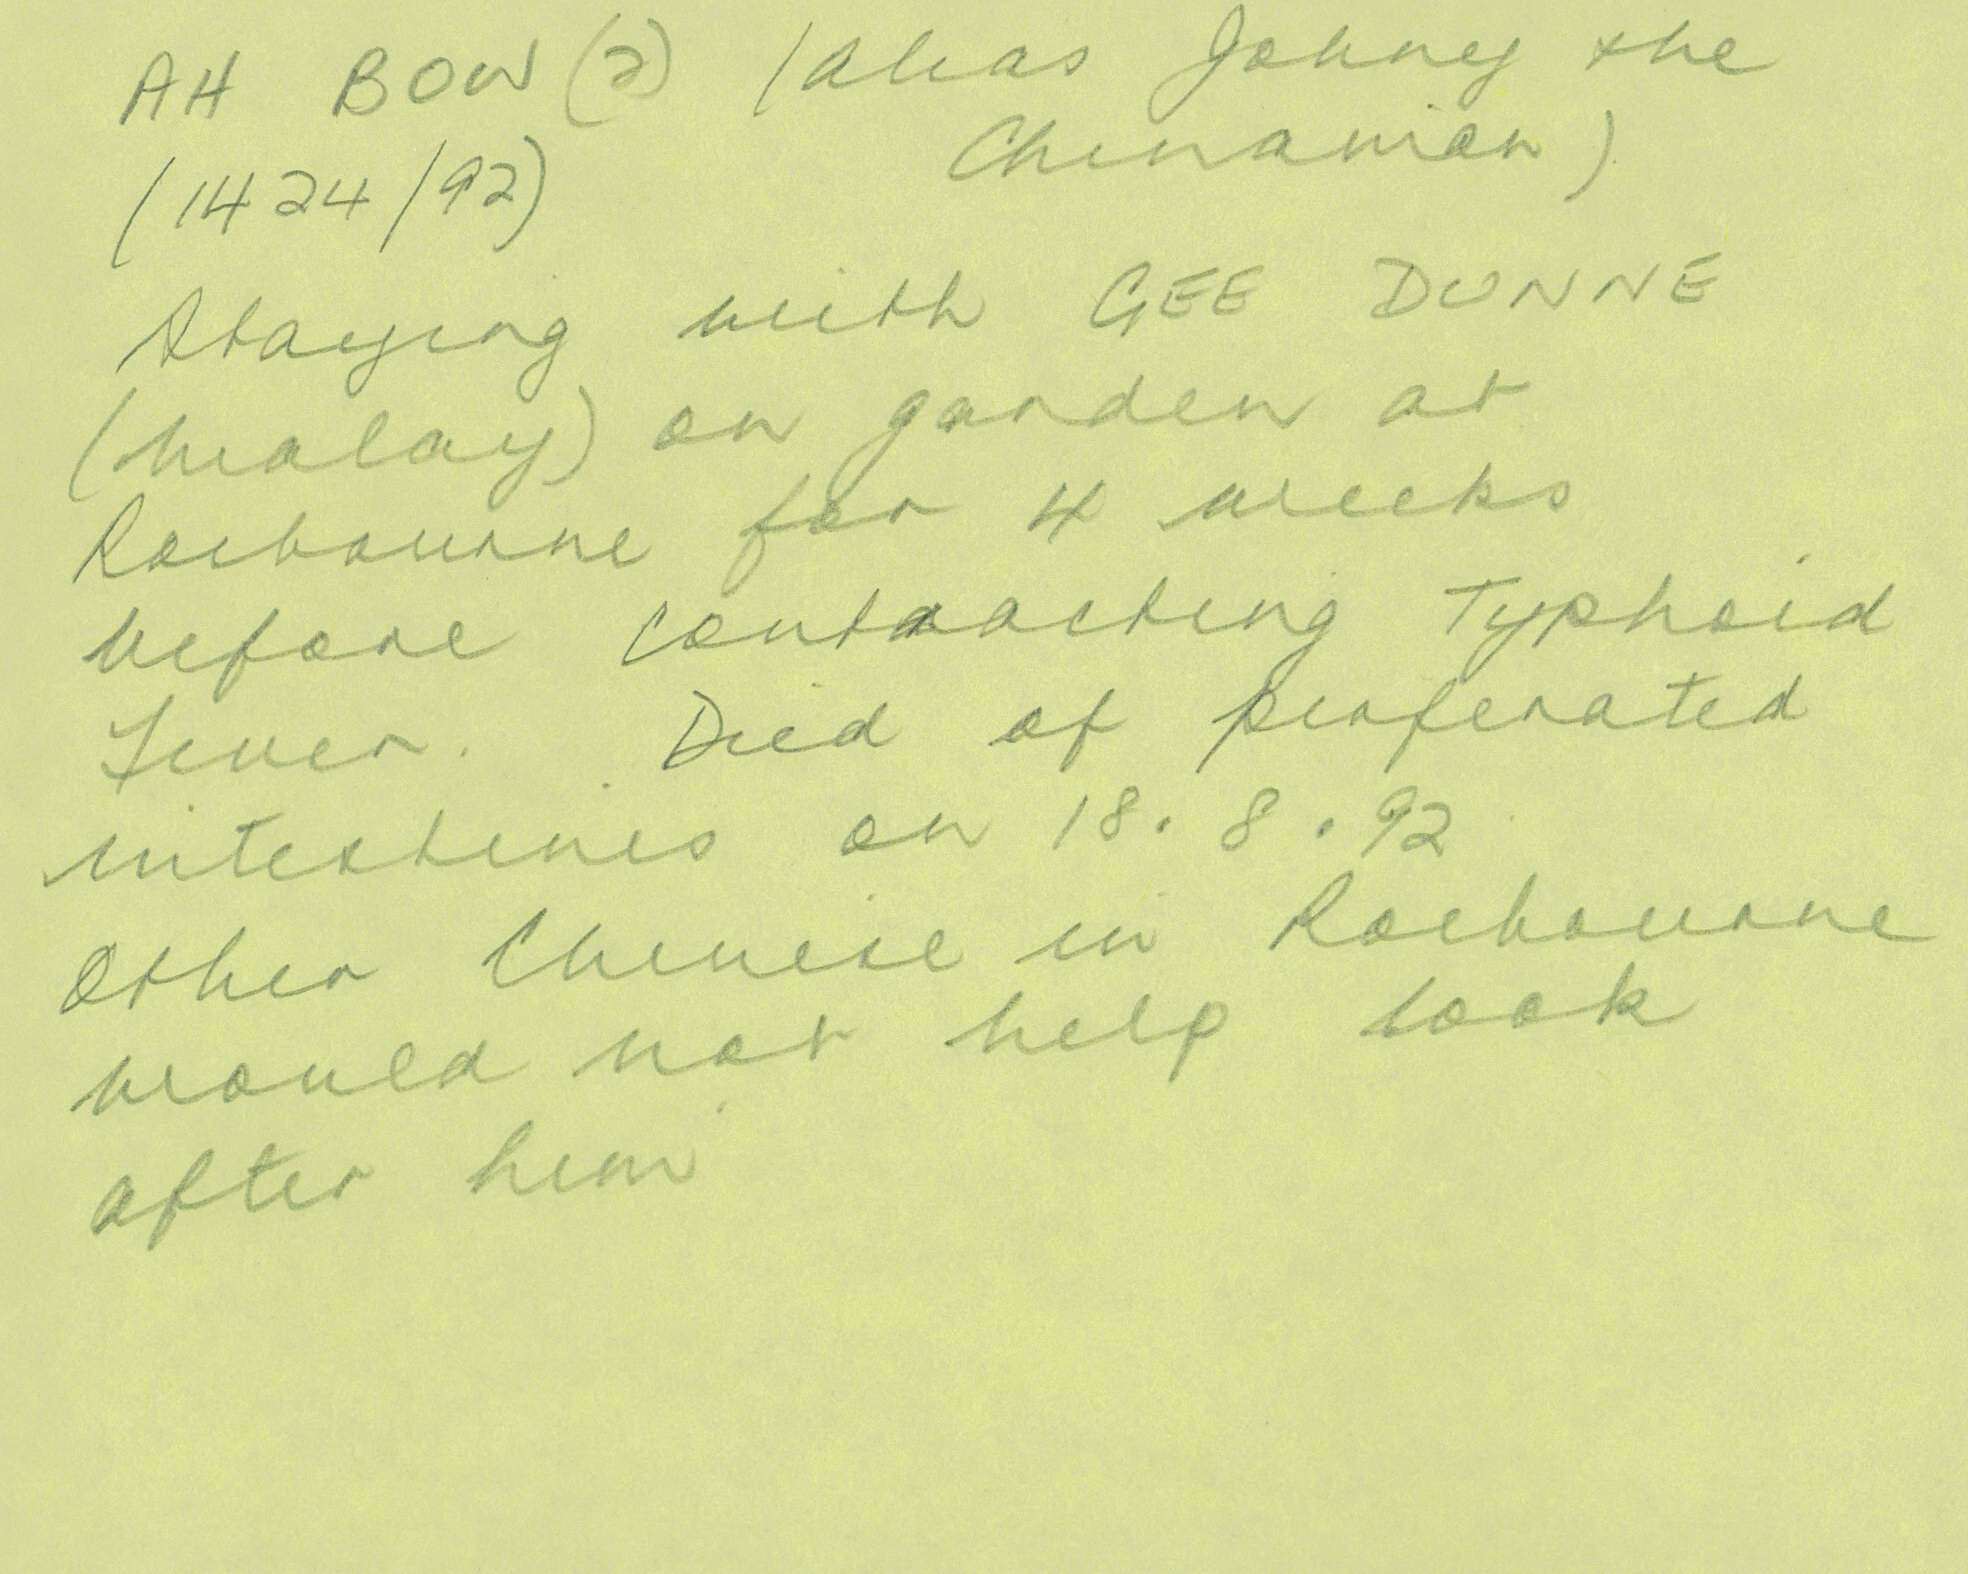 AH BOW (2) (alias Johney the
Chinaman)
(1424/92)
Staying with GEE DUNNE
(Malay) on garden at
Roebourne for 4 weeks
before contracting Typhoid
Fever. Died of perforated
intestines on 18.8.92
Other Chinese in Roebourne
would not help look
after him